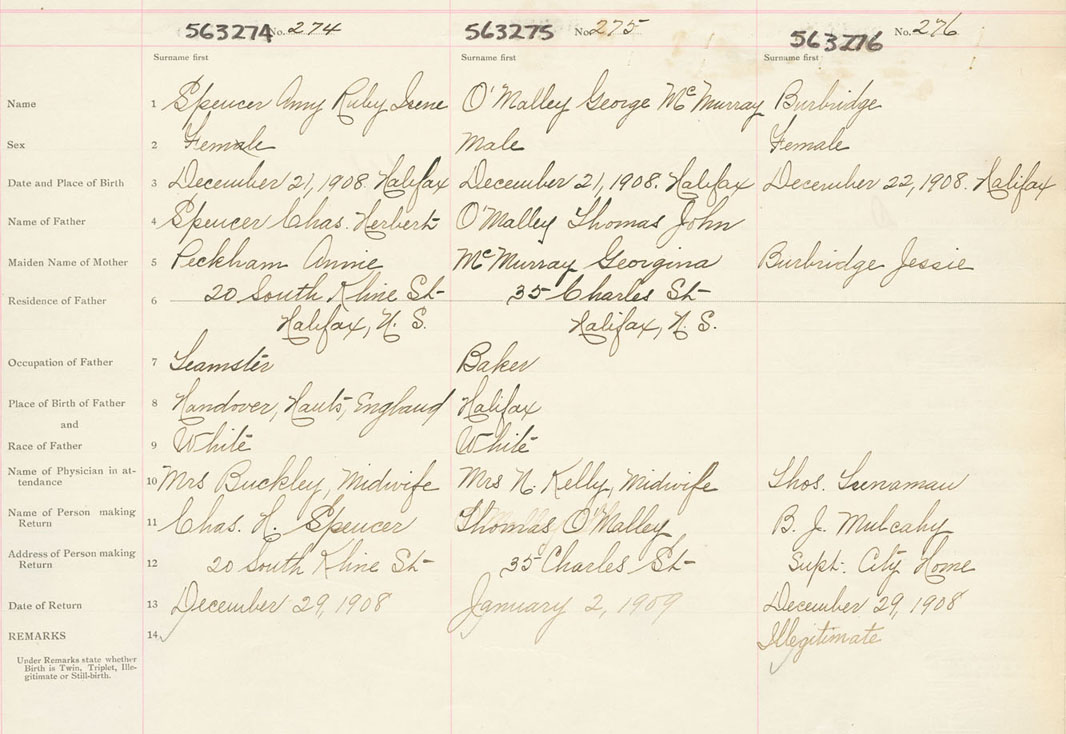 563274 No. 274 563275 No. 275 563276 No. 276
Surname first Surname first Surname first
Name 1 Spencer Amy Ruby Irene O'Malley George McMurray Burbridge
Sex 2 Female Male Female
Date and Place of Birth 3 December 21, 1908. Halifax December 21, 1908. Halifax December 22, 1908. Halifax
Name of Father 4 Spencer Chas. Herbert O'Malley Thomas John
Maiden Name of Mother 5 Peckham Annie McMurray Georgina Burbridge Jessie
Residence of Father 6 20 South Kline St 35 Charles St
Halifax, N. S. Halifax, N. S.
Occupation of Father 7 Teamster Baker
Place of Birth of Father 8 Handover, Hants, England Halifax
and
Race of Father 9 White White
Name of Physician in at-
tendance 10 Mrs Buckley, Midwife Mrs N. Kelly, Midwife Thos. Trenaman
Name of Person making
Return 11 Chas. H. Spencer Thomas O'Malley B. J. Mulcahy
Address of Person making
Return 12 20 South Kline St 35 Charles St Supt. City Home
Date of Return 13 December 29, 1908 January 2, 1909 December 29, 1908
REMARKS 14 Illegitimate
Under Remarks state whether
Birth is Twin, Triplet, Ille-
gitimate or Still-birth.